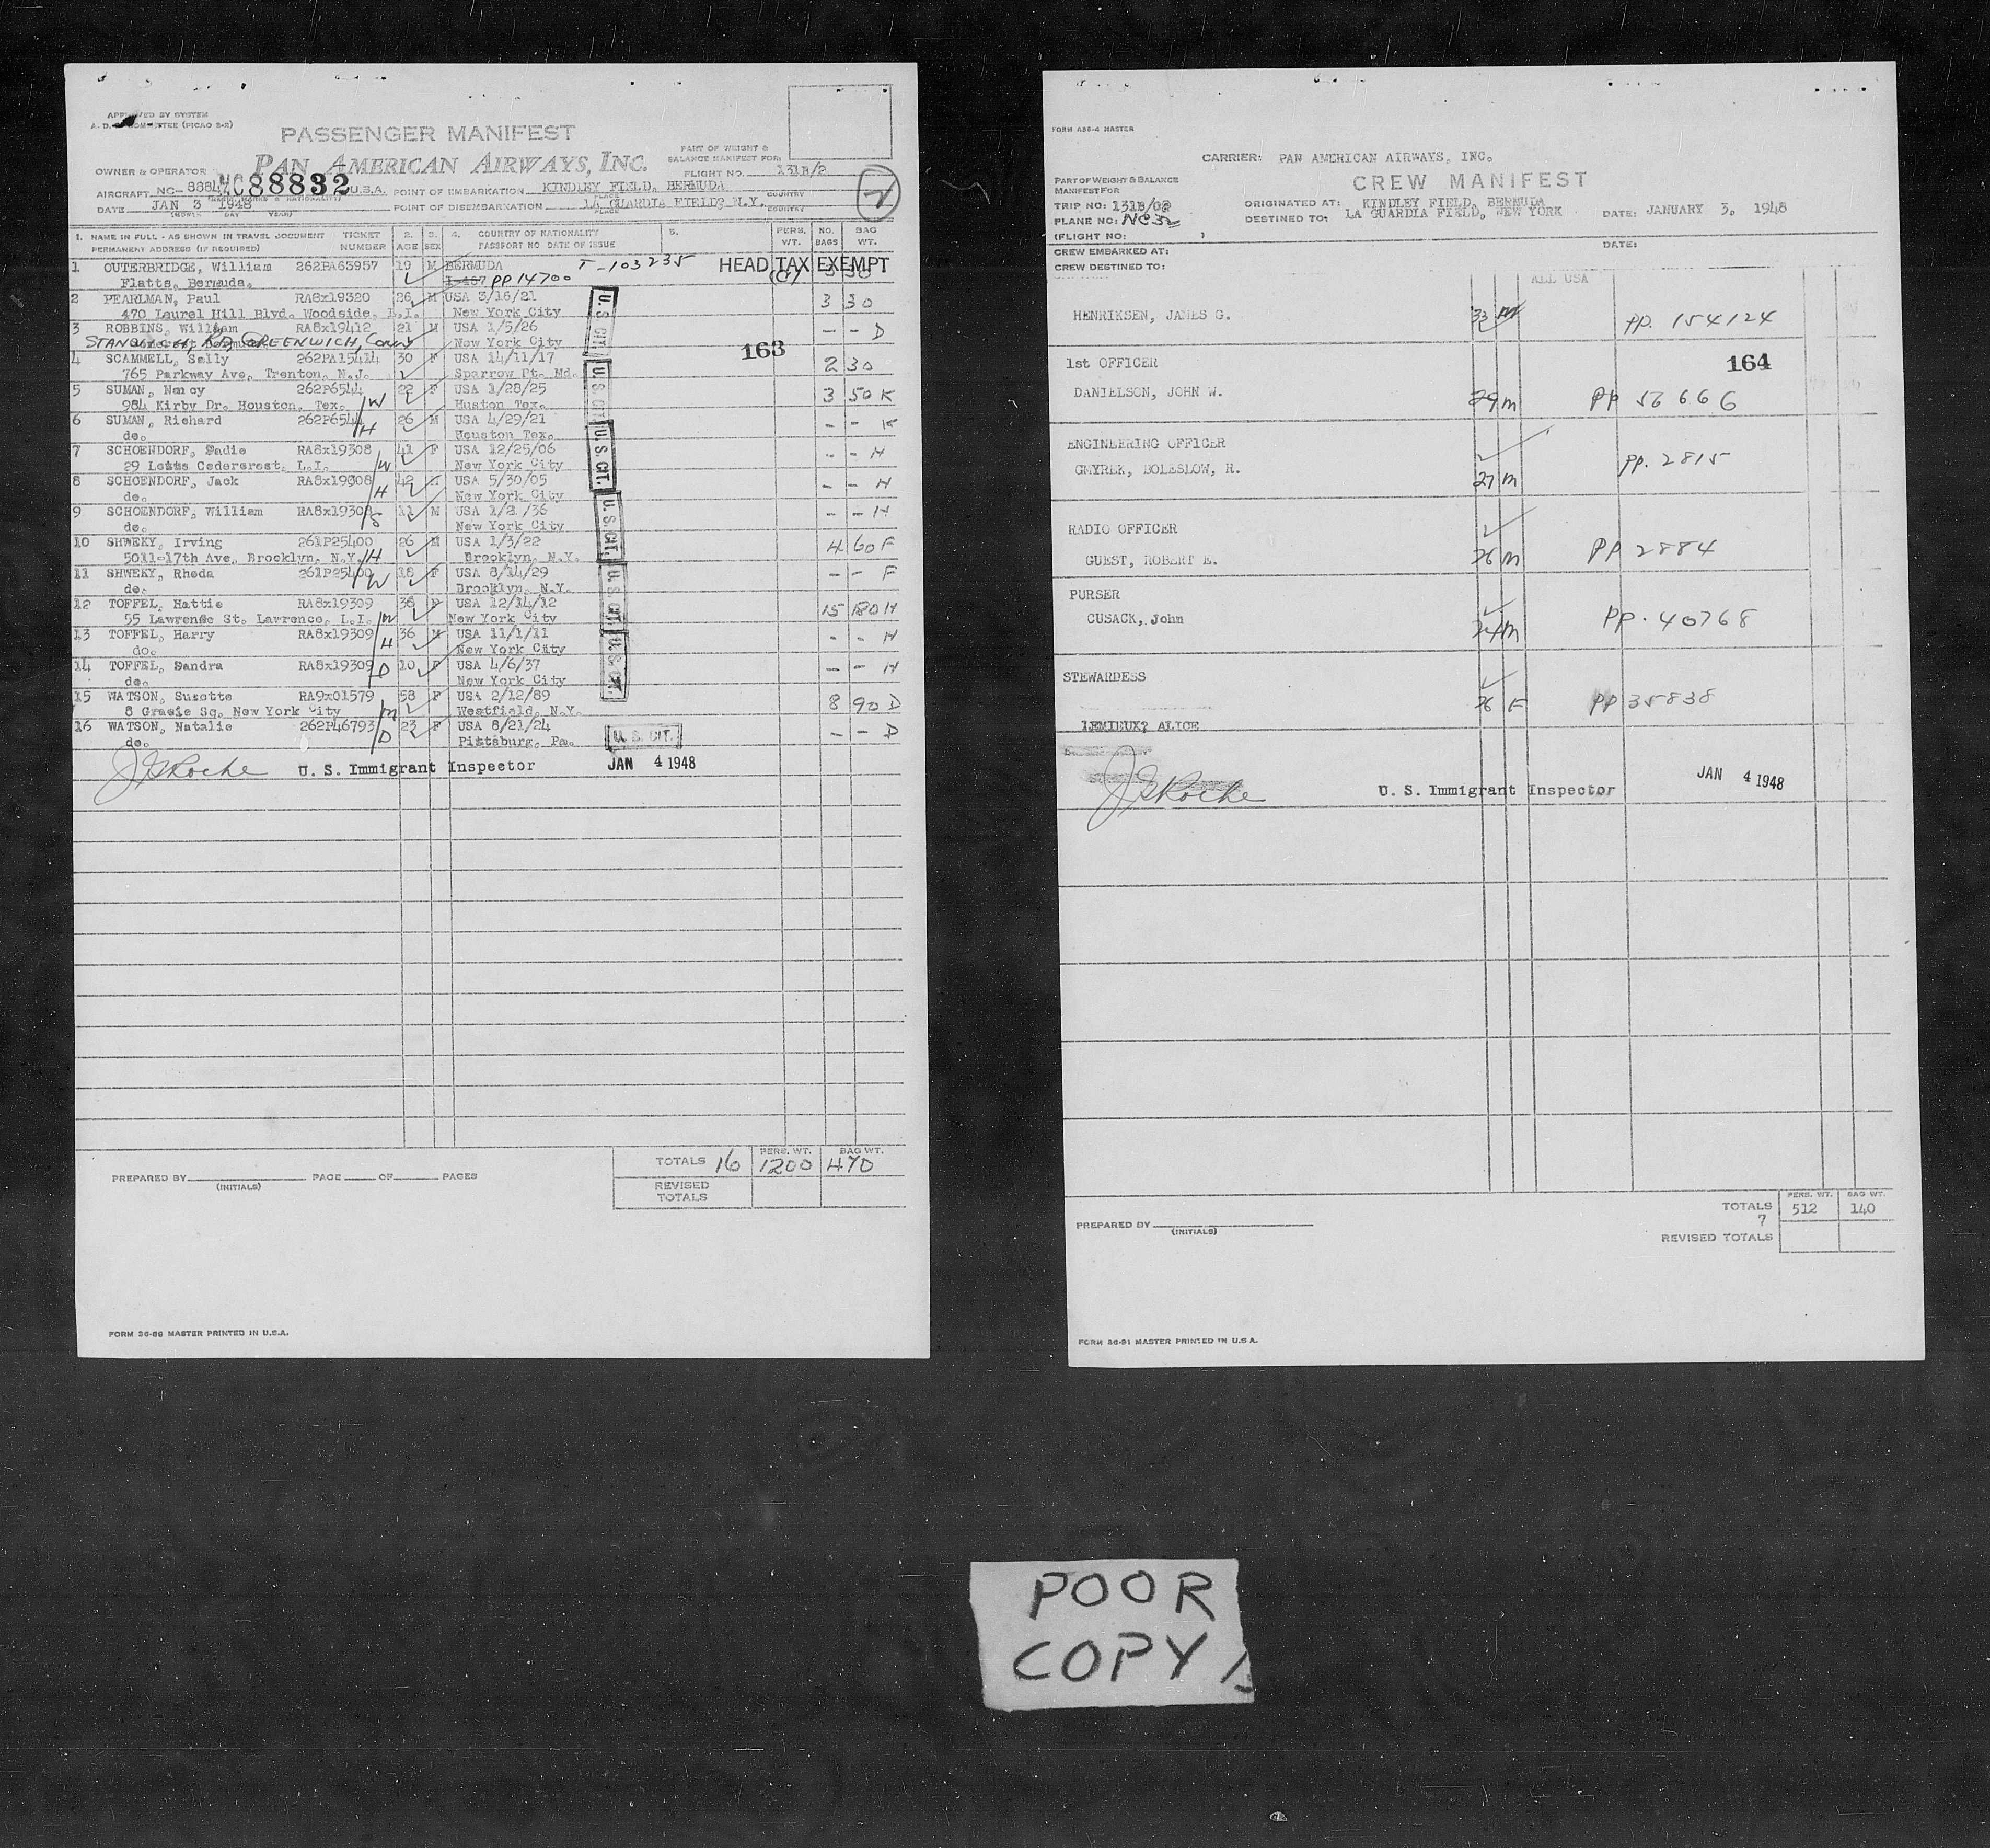 APPROVED BY SYSTEM
A. D. COMMITTEE (PICAO 2-R)
PASSENGER MANIFEST
PAN AMERICAN AIRWAYS, INC.
PART OF WEIGHT &
BALANCE MANIFEST FOR:
OWNER & OPERATOR
FLIGHT NO. 131B/2
AIRCRAFT NC- NC88832 U.S.A. POINT OF EMBARKATION KINDLEY FIELD, BERMUDA
PLACE COUNTRY
2
DATE JAN 3 1948 POINT OF DISEMBARKATION LA GUARDIA FIELD? N.Y.
(MONTH DAY YEAR) PLACE COUNTRY
1. NAME IN FULL - AS SHOWN IN TRAVEL DOCUMENT TICKET 2. 3. 4. COUNTRY OF NATIONALITY 5. PERS. NO. BAG
PERMANENT ADDRESS (IF REQUIRED) NUMBER AGE SEX PASSPORT NO DATE OF ISSUE WT. BAGS WT.
1 OUTERBRIDGE, William 262PA65957 19 M BERMUDA T-103235 HEAD TAX EXEMPT
Flatts, Bermuda. PP14700
2 PEARLMAN, Paul RA8x19320 26 M USA 3/16/21 3 30
470 Laurel Hill Blvd. Woodside, L.I. New York City
3 ROBBINS, William RA8x19412 21 M USA 1/5/26 - - D
STANWICH, RD, GREENWICH, Conn New York City
163
4 SCAMMELL, Sally 262PA15414 30 F USA 14/11/17 2 30
765 Parkway Ave, Trenton, N.J. Sparrow Pt. Md.
5 SUMAN, Nancy 262P6544 22 F USA 1/28/25 3 50 K
984 Kirby Dr. Houston, Tex. /W Huston Tex.
6 SUMAN, Richard 262P6544 26 M USA 4/29/21 - - K
do. /H Houston Tex.
7 SCHOENDORF, Sadie RA8x19308 41 F USA 12/25/06 - - H
29 Cedarcrest, L.I. /W New York City
8 SCHOENDORF, Jack RA8x19308 42 USA 5/30/05 - - H
do. /H New York City
9 SCHOENDORF, William RA8x19308 11 M USA 1/2 /36 - - H
do. /S New York City
10 SHWEKY, Irving 261P25400 26 M USA 1/3/22 4 60 F
5011-17th Ave, Brooklyn, N.Y. /H Brooklyn, N.Y.
11 SHWEKY, Rhoda 261P25400 18 F USA 8/14/29 - - F
do. /W Brooklyn, N.Y.
12 TOFFEL, Hattie RA8x19309 36 F USA 12/14/12 15 180 H
55 Lawrence St. Lawrence, L.I. New York City
13 TOFFEL, Harry RA8x19309 36 M USA 11/1/11 - - H
do. /H New York City
14 TOFFEL, Sandra RA8x19309 10 F USA 4/6/37 - - H
do. /D New York City
15 WATSON, Susette RA9x01579 58 F USA 2/12/89 8 90 D
8 Gracie Sq. New York City /M Westfield, N.Y.
16 WATSON, Natalie 262P46793 23 F USA 8/21/24 - - D
do. /D Pittsburg, Pa.
U. S. CIT.
U. S. CIT.
U. S. CIT.
U. S. CIT.
U. S. CIT.
U. S. CIT.
U. S. CIT.
J G Roche U. S. Immigrant Inspector JAN 4 1948
TOTALS 16 PERS. WT. 1200 BAG WT. 470
PREPARED BY (INITIALS) PAGE OF PAGES
REVISED
TOTALS
FORM 36-89 MASTER PRINTED IN U.S.A.
FORM A36-4 MASTER
CARRIER: PAN AMERICAN AIRWAYS, INC.
CREW MANIFEST
PART OF WEIGHT & BALANCE
MANIFEST FOR
TRIP NO: 131B/02 ORIGINATED AT: KINDLEY FIELD, BERMUDA
PLANE NO: NC32 DESTINED TO: LA GUARDIA FIELD, NEW YORK DATE: JANUARY 3, 1948
(FLIGHT NO: )
CREW EMBARKED AT: DATE:
CREW DESTINED TO:
ALL USA
HENRIKSEN, JAMES G. 33 M PP. 154124
1st OFFICER 164
DANIELSON, JOHN W. 29 M PP 56666
ENGINEERING OFFICER
GMYREK, BOLESLOW, R. 27 M PP. 2815
RADIO OFFICER
GUEST, ROBERT E. 26 M PP 2884
PURSER
CUSACK, John 24 M PP. 40768
STEWARDESS
26 F PP 35838
LEMIEUX? ALICE
J G Roche U. S. Immigrant Inspector JAN 4 1948
PERS. WT. BAG WT.
TOTALS 512 140
7
PREPARED BY (INITIALS)
REVISED TOTALS
FORM 36-91 MASTER PRINTED IN U.S.A.
POOR
COPY